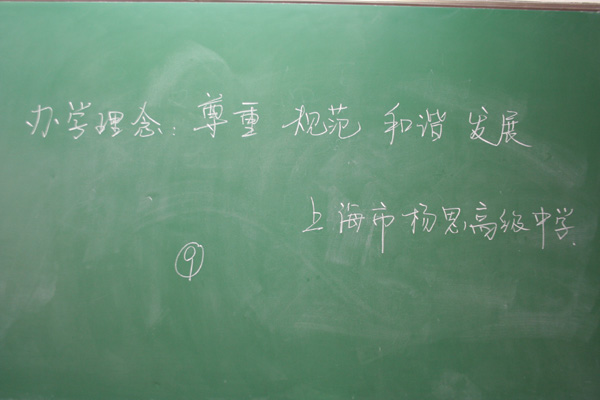 办学理念：尊重 规范 和谐 发展
上海市杨思高级中学
⑨